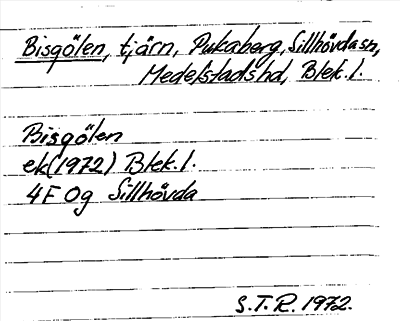 Bisgölen, tjärn, Pukaberg, Sillhövdasn,
Medelstadshd, Blek.l.
Bisgölen
ek(1972) Blek.l.
4F0g Sillhövda
S.T.R. 1972.